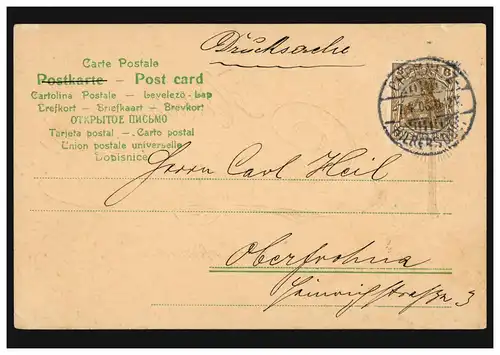 Drucksache
Carte Postale
Postkarte – Post card
Cartolina Postale – Levelező-Lap
Brefkort – Briefkaart – Brevkort
ОТКРЫТОЕ ПИСЬМО
Tarjeta postal –. Carto postal
Union postale universelle
Dopisnice
Herrn Carl Heil
Oberfrohna
Heinrichstraße 3